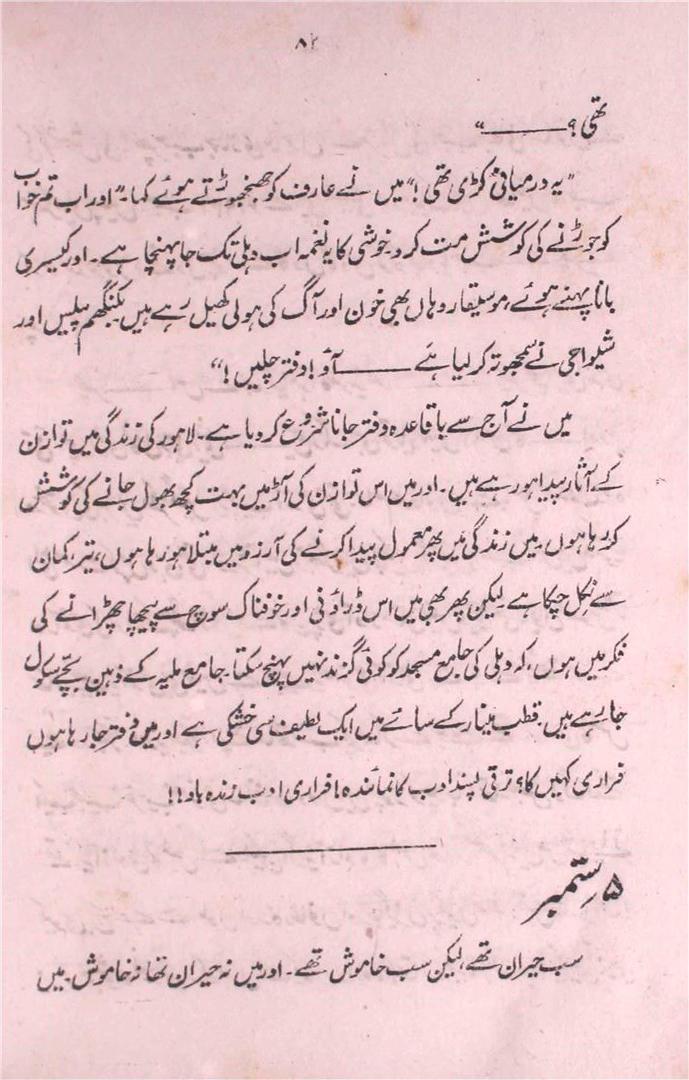 ۸۲
تھی؟ ——— “
”یہ درمیانی کڑی تھی!“ میں نے عارف کو جھنجھوڑتے ہوئے کہا۔ ”اور اب تم خواب
کو جوڑنے کی کوشش مت کرو۔ خوشی کا یہ نغمہ اب دہلی تک جا پہنچا ہے۔ اور کیسری
بانا پہنے ہوئے، موسیقار وہاں بھی خون اور آگ کی ہولی کھیل رہے ہیں بکنگھم پیلیس اور
شیواجی نے سمجھوتہ کر لیا ہے ——— آؤ! دفتر چلیں!“
میں نے آج سے باقاعدہ دفتر جانا شروع کر دیا ہے۔ لاہور کی زندگی میں توازن
کے آثار پیدا ہو رہے ہیں۔ اور میں اس توازن کی آڑ میں بہت کچھ بھول جانے کی کوشش
کر رہا ہوں۔ میں زندگی میں پھر معمول پیدا کرنے کی آرزو میں مبتلا ہو رہا ہوں، تیر کمان
سے نکل چکا ہے لیکن پھر بھی میں اس ڈراؤنی اور خوفناک سوچ سے پیچھا چھڑانے کی
فکر میں ہوں، کہ دہلی کی جامع مسجد کو کوئی گزند نہیں پہنچ سکتا۔ جامع ملیہ کے ذہین بچے سکول
جا رہے ہیں۔ قطب مینار کے سائے میں ایک لطیف سی خنکی ہے اور میں دفتر جا رہا ہوں
فراری کہیں کا؟ ترقی پسند ادب کا نمائندہ! فراری ادب زندہ باد!!
۵ ستمبر
سب حیران تھے، لیکن سب خاموش تھے۔ اور میں نہ حیران تھا نہ خاموش۔ میں